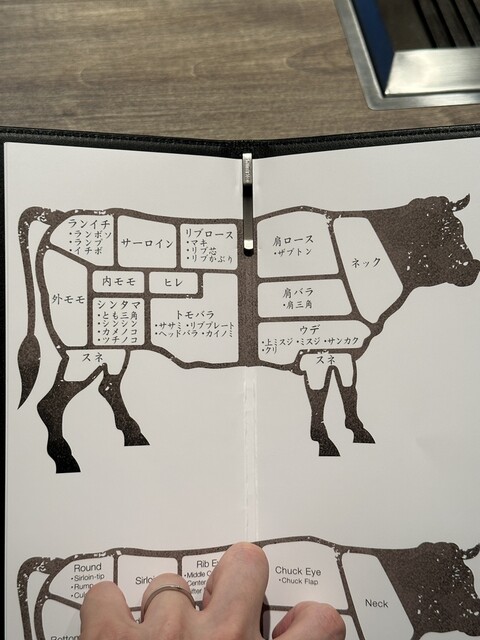 ランイチ
・ランボソ
・ランプ
・イチボ
サーロイン
リブロース
・マキ
・リブ芯
・リブかぶり
肩ロース
・ザブトン
ネック
外モモ
内モモ
ヒレ
シンタマ
・とも三角
・シンシン
・カメノコ
・ツチノコ
トモバラ
・ササミ・リブプレート
・ヘッドバラ・カイノミ
肩バラ
・肩三角
ウデ
・上ミスジ・ミスジ・サンカク
・クリ
スネ
スネ
Round
・Sirloin-tip
・Rump
Rib
・Middle
Chuck Eye
・Chuck Flap
Neck